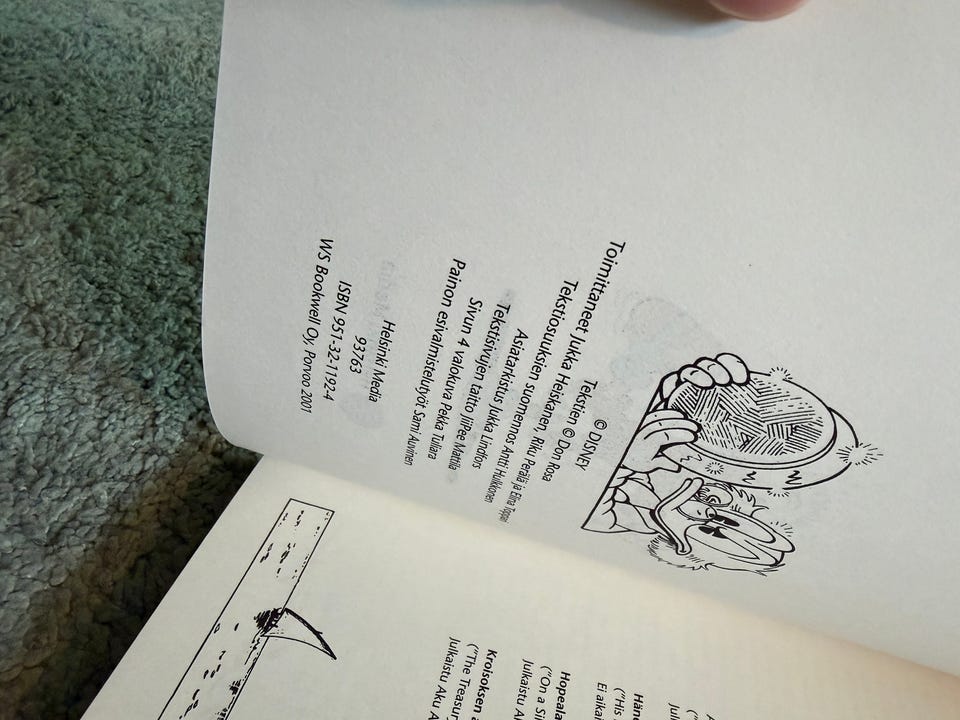 © DISNEY
Tekstien © Don Rosa
Toimittaneet Jukka Heiskanen, Riku Perälä ja Elina Toppari
Tekstiosuuksien suomennos Antti Hulkkonen
Asiatarkistus Jukka Lindfors
Tekstisivujen taitto JiiPee Mattila
Sivun 4 valokuva Pekka Tuliara
Painon esivalmistelutyöt Sami Auvinen
Helsinki Media
93763
ISBN 951-32-1192-4
WS Bookwell Oy, Porvoo 2001
("His
Ei aika
Hopeala
("On a Si
Julkaistu
Kroisoksen
("The Treasur
Julkaistu Aku A